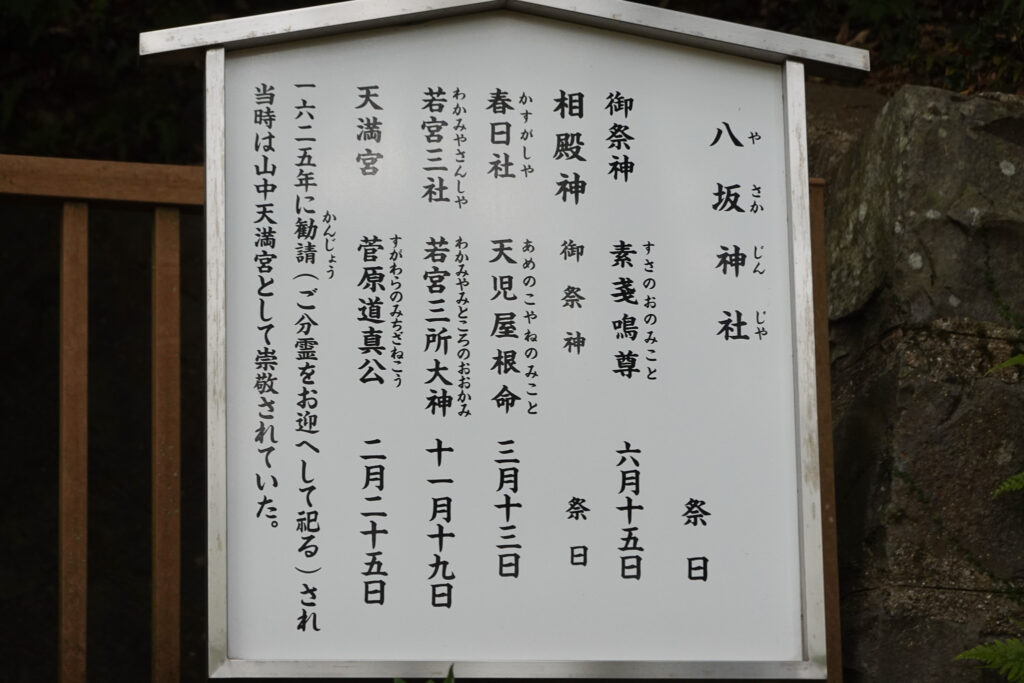 八坂神社
やさかじんじゃ
祭日
御祭神 素戔鳴尊 六月十五日
すさのおのみこと
相殿神 御祭神 祭日
春日社 天児屋根命 三月十三日
かすがしや あめのこやねのみこと
若宮三社 若宮三所大神 十一月十九日
わかみやさんしや わかみやみところのおおかみ
天満宮 菅原道真公 二月二十五日
すがわらのみちざねこう
一六二五年に勧請(ご分霊をお迎へして祀る)され
かんじょう
当時は山中天満宮として崇敬されていた。